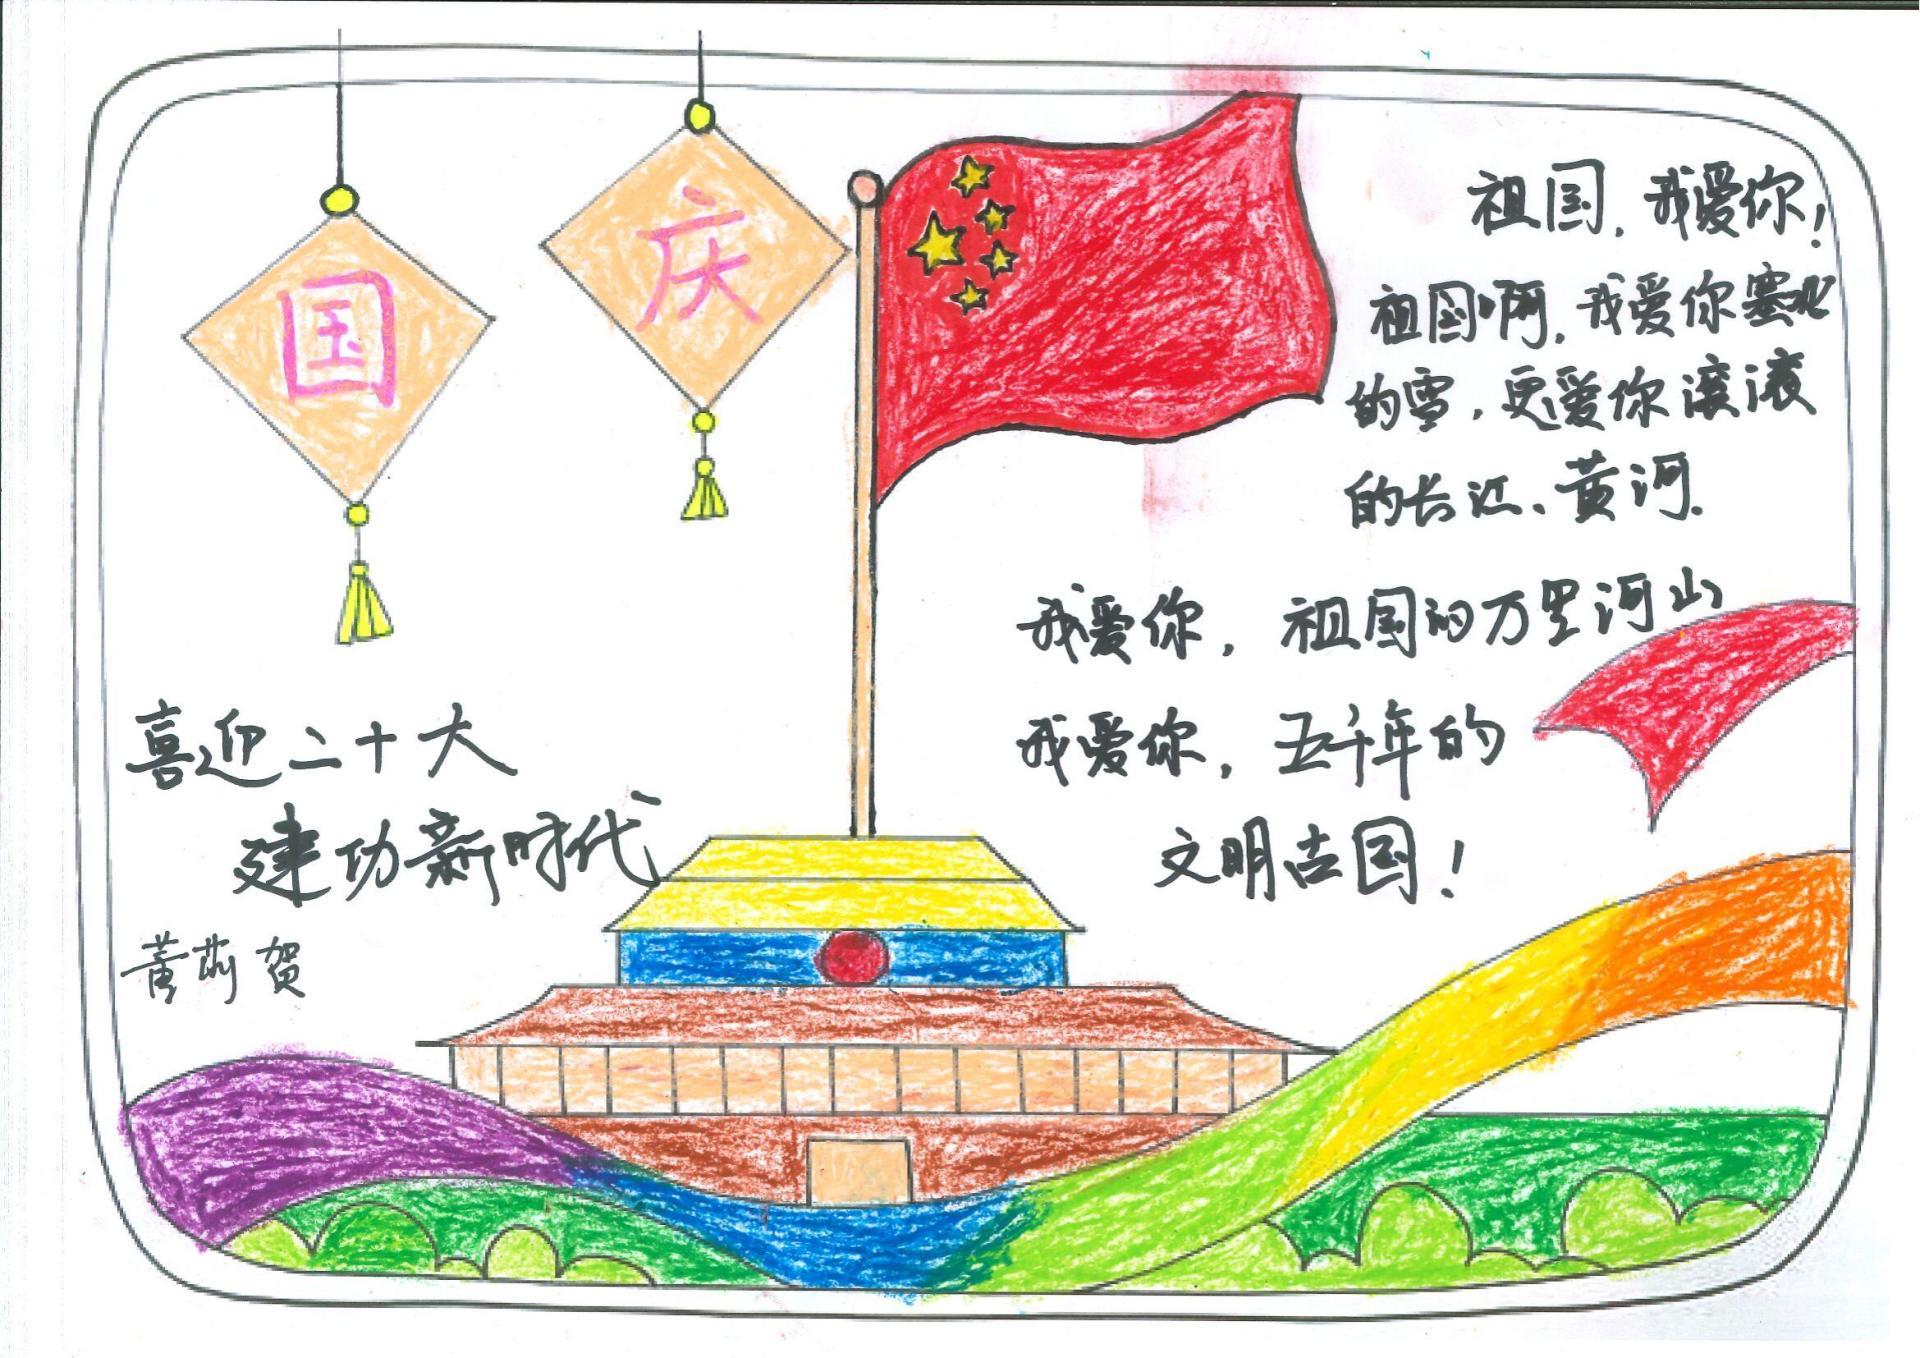 国 庆
祖国，我爱你！
祖国啊，我爱你塞北
的雪，更爱你滚滚
的长江、黄河.
我爱你，祖国的万里河山
我爱你，五千年的
文明古国！
喜迎二十大
建功新时代
贺